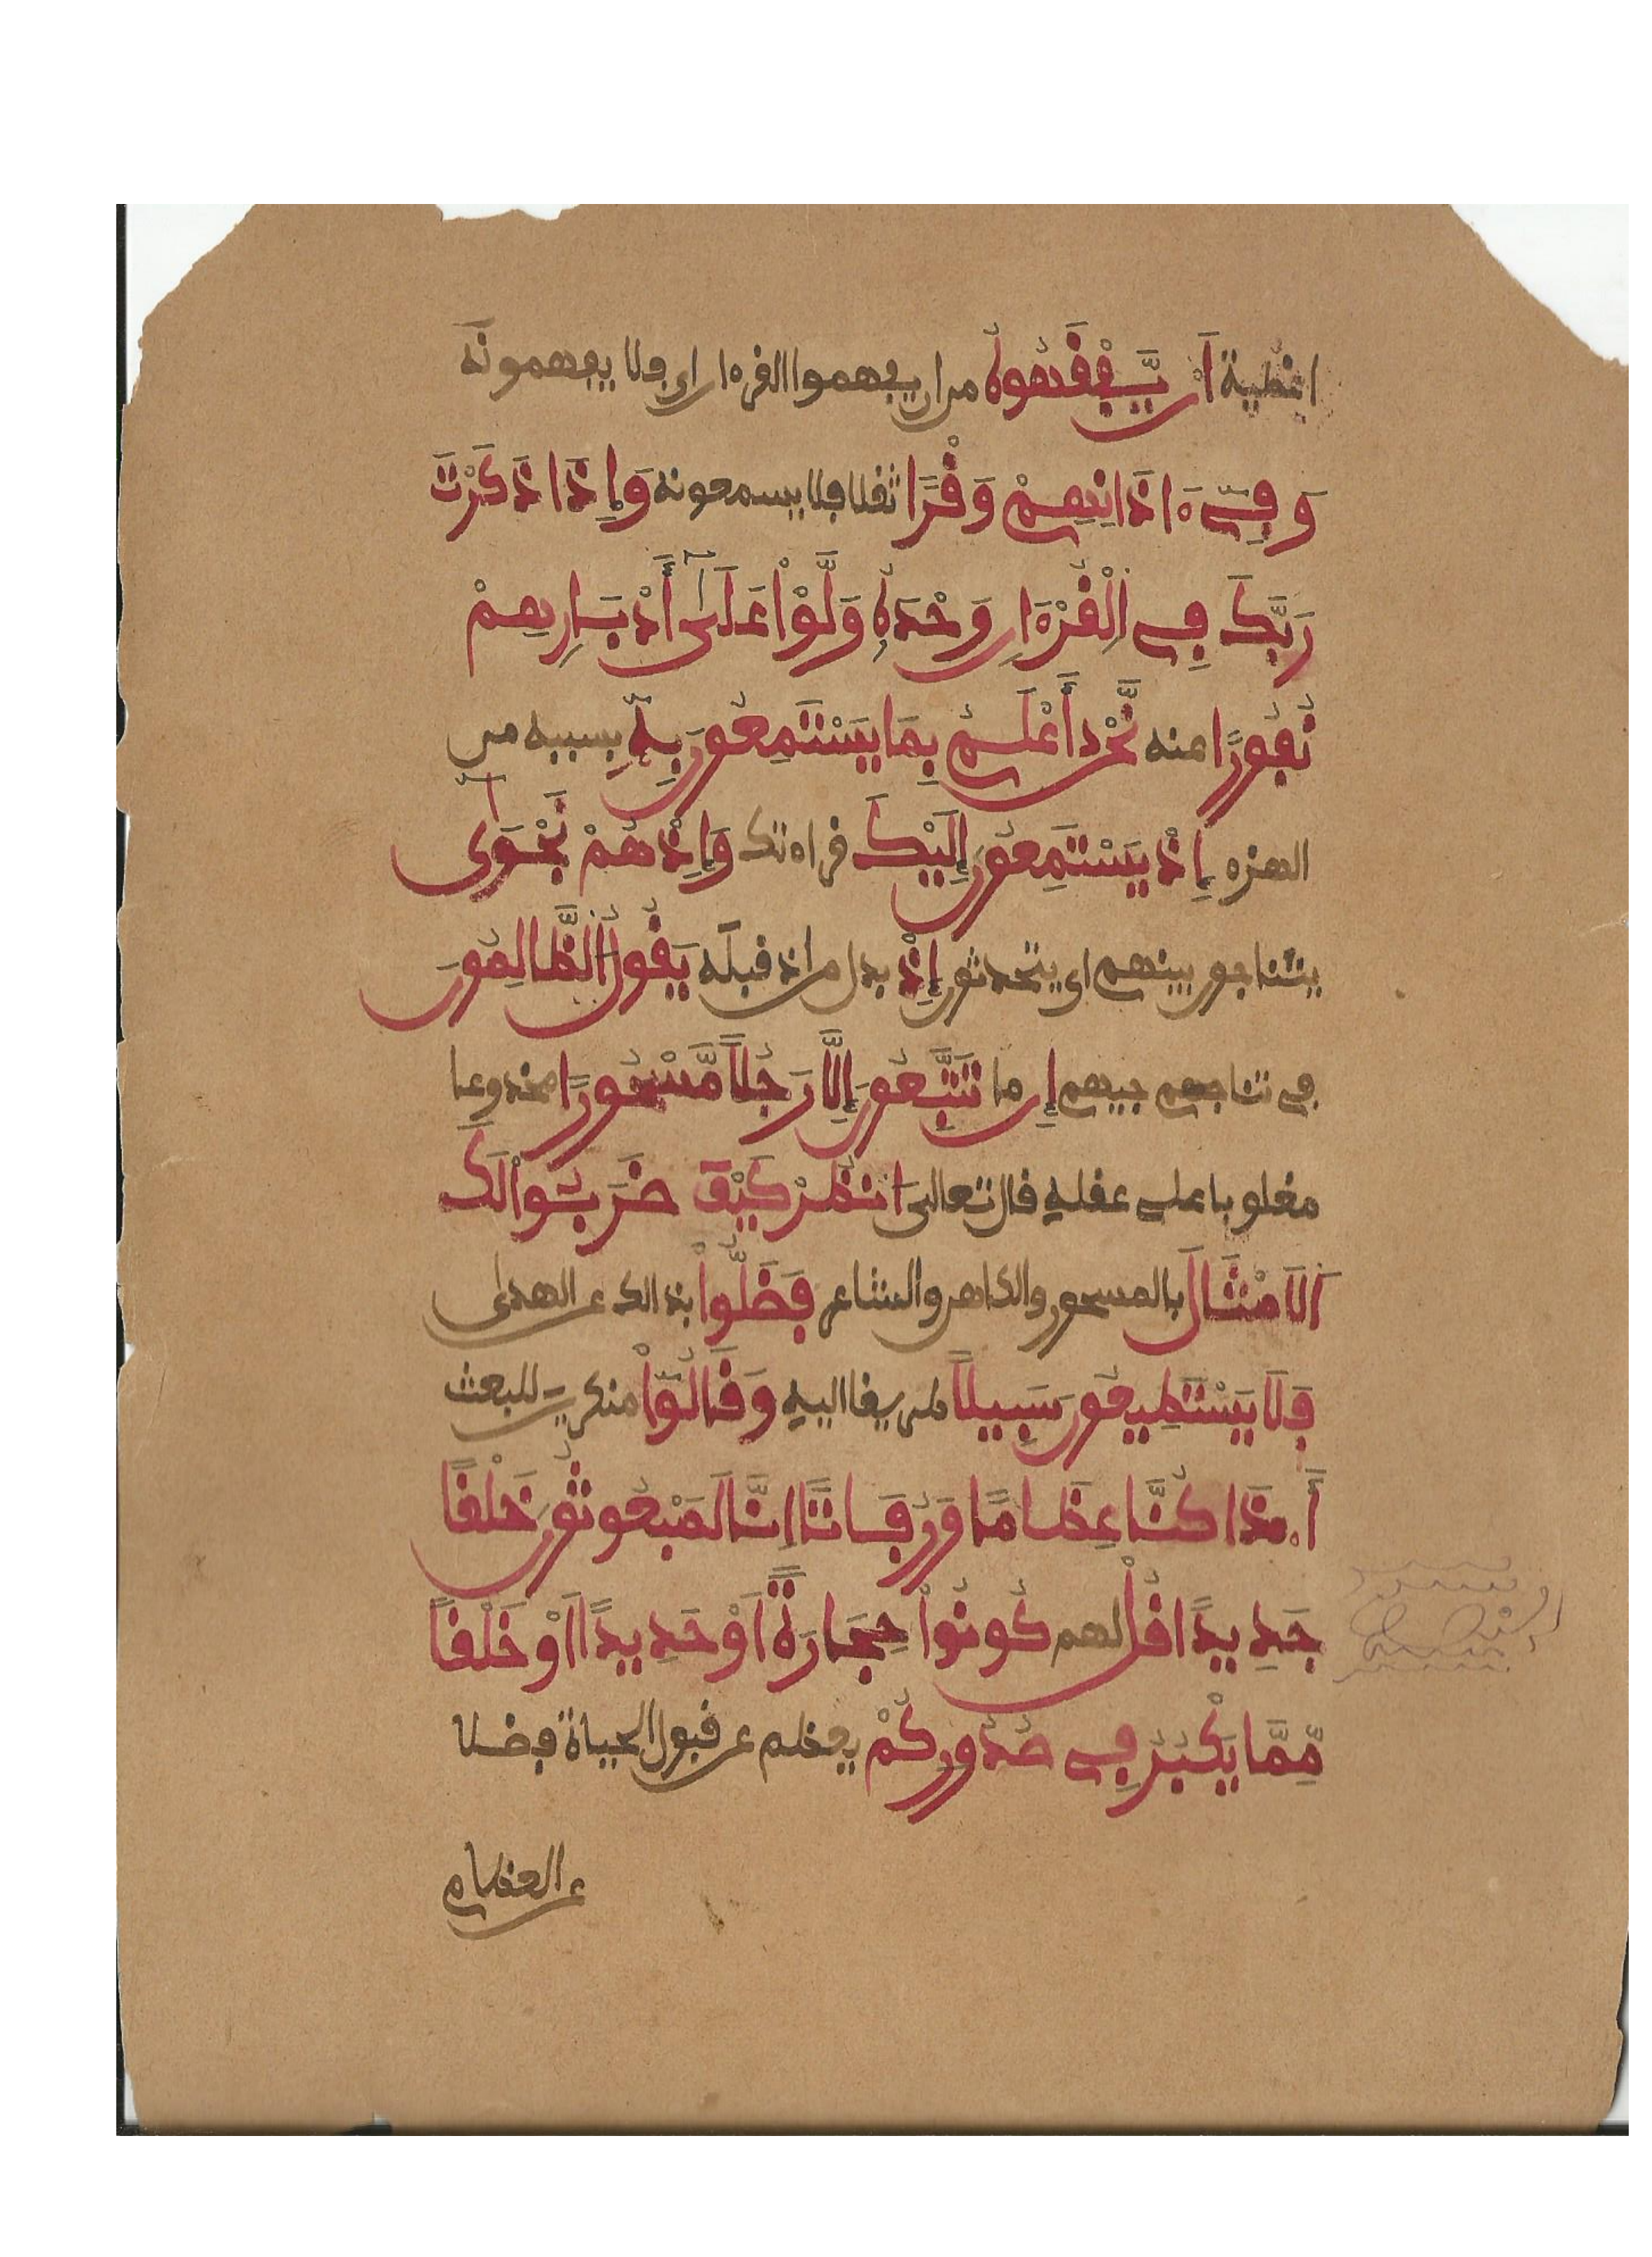 اغطية أَن يَّفْقَهُوهُ من ان يفهموا القرءان اى فلا يفهمونه
وَفِىٓ ءَاذَانِهِمْ وَقْرًا ثقلا فلا يسمعونه وَإِذَا ذَكَرْتَ
رَبَّكَ فِى الْقُرْءَانِ وَحْدَهُۥ وَلَّوْاْ عَلَىٰٓ أَدْبَارِهِمْ
نُفُورًا عنه نَّحْنُ أَعْلَمُ بِمَا يَسْتَمِعُونَ بِهِۦٓ بسببه من
الهزء إِذْ يَسْتَمِعُونَ إِلَيْكَ قراءتك وَإِذْ هُمْ نَجْوَىٰٓ
يتناجون بينهم اى يتحدثون إِذْ بدل من اذ قبله يَقُولُ الظَّالِمُونَ
فى تناجهم جيهم إِن ما تَتَّبِعُونَ إِلَّا رَجُلًا مَّسْحُورًا مخدوعا
مغلوبا على عقله قال تعالى انظُرْ كَيْفَ ضَرَبُواْ لَكَ
اَلَامْثَالَ بالمسحور والكاهن والشاعر فَضَلُّواْ بذالك عن الهدى
فَلَا يَسْتَطِيعُونَ سَبِيلًا طريقا اليه وَقَالُوٓاْ منكرين للبعث
أَ.ذَا كُنَّا عِظَامًا وَرُفَاتًا اِنَّا لَمَبْعُوثُونَ خَلْقًا
جَدِيدًا قُلْ لهم كُونُواْ حِجَارَةً اَوْ حَدِيدًا اَوْ خَلْقًا
مِّمَّا يَكْبُرُ فِى صُدُورِكُمْ يعظم عن قبول الحياة فضلا
عن العظام